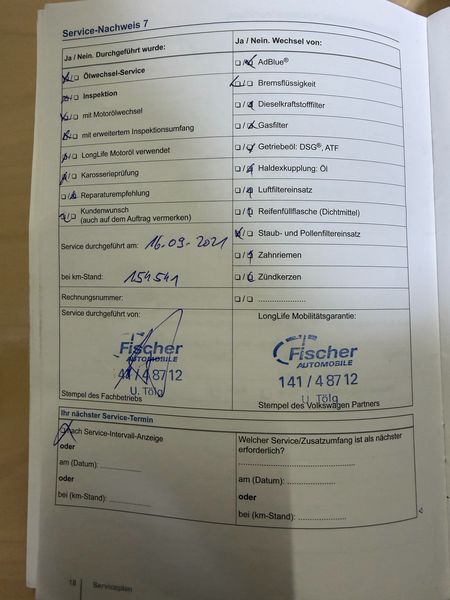 Service-Nachweis 7
Ja / Nein. Durchgeführt wurde:
Ölwechsel-Service
Inspektion
mit Motorölwechsel
mit erweitertem Inspektionsumfang
LongLife Motoröl verwendet
Karosserieprüfung
Reparaturempfehlung
Kundenwunsch
(auch auf dem Auftrag vermerken)
Service durchgeführt am: 16.09-2021
bei km-Stand: 154541
Rechnungsnummer:
Service durchgeführt von:
Fischer
AUTOMOBILE
141/48712
U. Tölg
Stempel des Fachbetriebs
Ja / Nein. Wechsel von:
AdBlue®
Bremsflüssigkeit
Dieselkraftstofffilter
Gasfilter
Getriebeöl: DSG®, ATF
Haldexkupplung: Öl
Luftfiltereinsatz
Reifenfüllflasche (Dichtmittel)
Staub- und Pollenfiltereinsatz
Zahnriemen
Zündkerzen
LongLife Mobilitätsgarantie:
Fischer
AUTOMOBILE
141/48712
U. Tölg
Stempel des Volkswagen Partners
Ihr nächster Service-Termin
nach Service-Intervall-Anzeige
oder
am (Datum):
oder
bei (km-Stand):
Welcher Service/Zusatzumfang ist als nächster
erforderlich?
am (Datum):
oder
bei (km-Stand):
18 Serviceplan